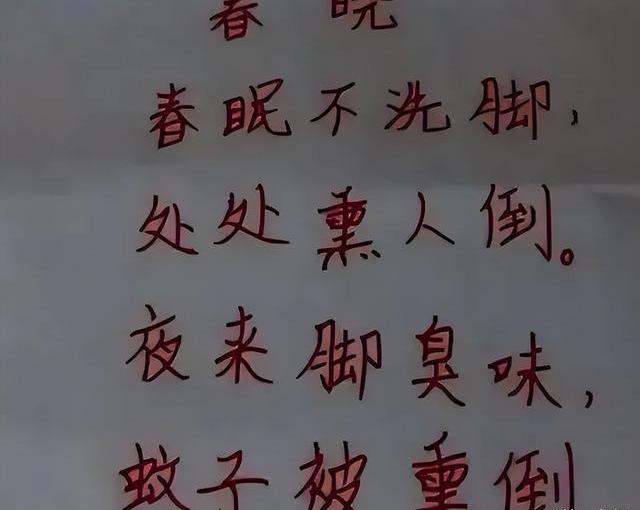 春晓
春眠不洗脚,
处处熏人倒。
夜来脚臭味,
蚊子被熏倒